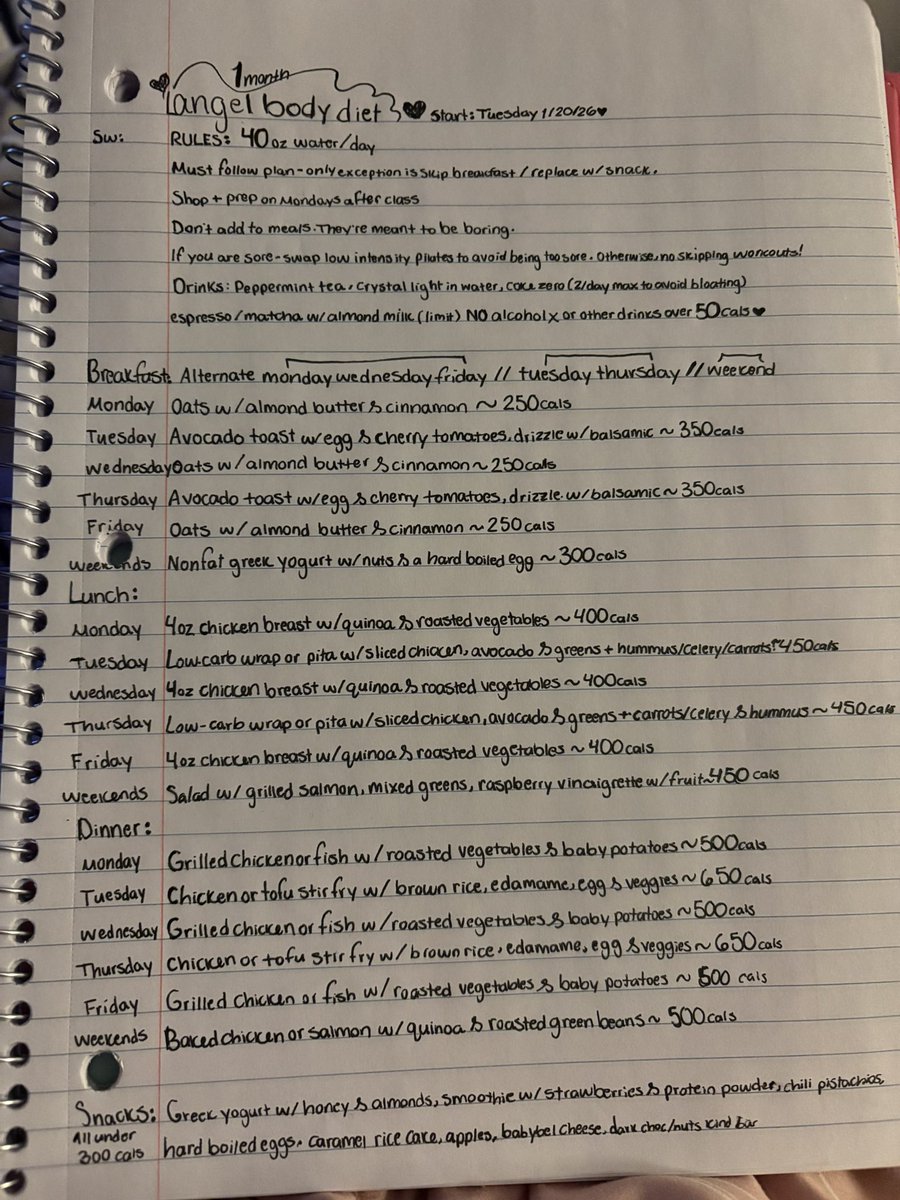 1 month
angel body diet Start: Tuesday 1/20/26
SW: RULES: 40 oz water/day
Must follow plan - only exception is skip breakfast / replace w/ snack.
Shop + prep on Mondays after class
Don't add to meals. They're meant to be boring.
If you are sore - swap low intensity pilates to avoid being too sore. Otherwise, no skipping workouts!
Drinks: Peppermint tea, crystal light in water, coke zero (2/day max to avoid bloating)
espresso/matcha w/ almond milk (limit) NO alcohol x or other drinks over 50cals
Breakfast: Alternate monday wednesday friday // tuesday thursday // weekend
Monday Oats w/ almond butter & cinnamon ~ 250cals
Tuesday Avocado toast w/egg & cherry tomatoes, drizzle w/ balsamic ~ 350cals
Wednesday Oats w/ almond butter & cinnamon ~ 250cals
Thursday Avocado toast w/egg & cherry tomatoes, drizzle w/ balsamic ~ 350cals
Friday Oats w/ almond butter & cinnamon ~ 250cals
Weekends Nonfat greek yogurt w/ nuts & a hard boiled egg ~ 300cals
Lunch:
Monday 4oz chicken breast w/ quinoa & roasted vegetables ~ 400cals
Tuesday Low-carb wrap or pita w/ sliced chicken, avocado & greens + hummus/celery/carrots ~ 450cals
Wednesday 4oz chicken breast w/ quinoa & roasted vegetables ~ 400cals
Thursday Low-carb wrap or pita w/ sliced chicken, avocado & greens + carrots/celery & hummus ~ 450cals
Friday 4oz chicken breast w/ quinoa & roasted vegetables ~ 400cals
Weekends Salad w/ grilled salmon, mixed greens, raspberry vincaigrette w/ fruit ~ 450 cals
Dinner:
Monday Grilled chicken or fish w/ roasted vegetables & baby potatoes ~ 500cals
Tuesday Chicken or tofu stir fry w/ brown rice, edamame, egg & veggies ~ 650 cals
Wednesday Grilled chicken or fish w/ roasted vegetables & baby potatoes ~ 500cals
Thursday Chicken or tofu stir fry w/ brown rice, edamame, egg & veggies ~ 650cals
Friday Grilled chicken or fish w/ roasted vegetables & baby potatoes ~ 500 cals
Weekends Baked chicken or salmon w/ quinoa & roasted green beans ~ 500cals
Snacks: Greek yogurt w/ honey & almonds, smoothie w/ strawberries & protein powder, chili pistachios,
All under 300 cals hard boiled eggs, caramel rice cake, apples, babybel cheese, dark choc/nuts kind bar